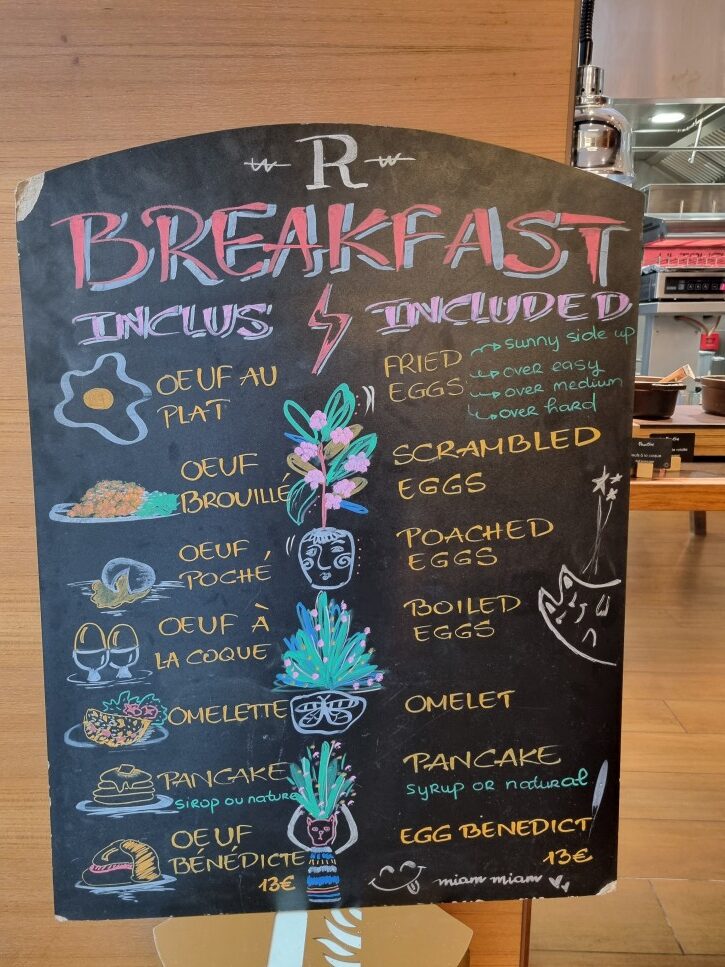 R
BREAKFAST
INCLUS
INCLUDED
OEUF AU
PLAT
FRIED
EGGS
sunny side up
over easy
over medium
over hard
OEUF
BROUILLÉ
SCRAMBLED
EGGS
OEUF
POCHÉ
POACHED
EGGS
OEUF À
LA COQUE
BOILED
EGGS
OMELETTE
OMELET
PANCAKE
sirop ou nature
PANCAKE
syrup or natural
OEUF
BÉNÉDICTE
13€
EGG BENEDICT
13€
miam miam